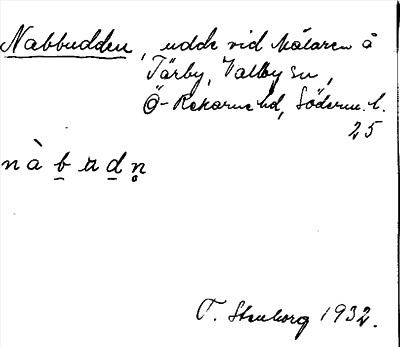 Nabbudden, udde vid Mälaren å
Tärby, Vallby sn,
Ö-Rekarne hd, Söderm. l.
25
nàb̲ud̲n̥
T. Stenborg 1932.